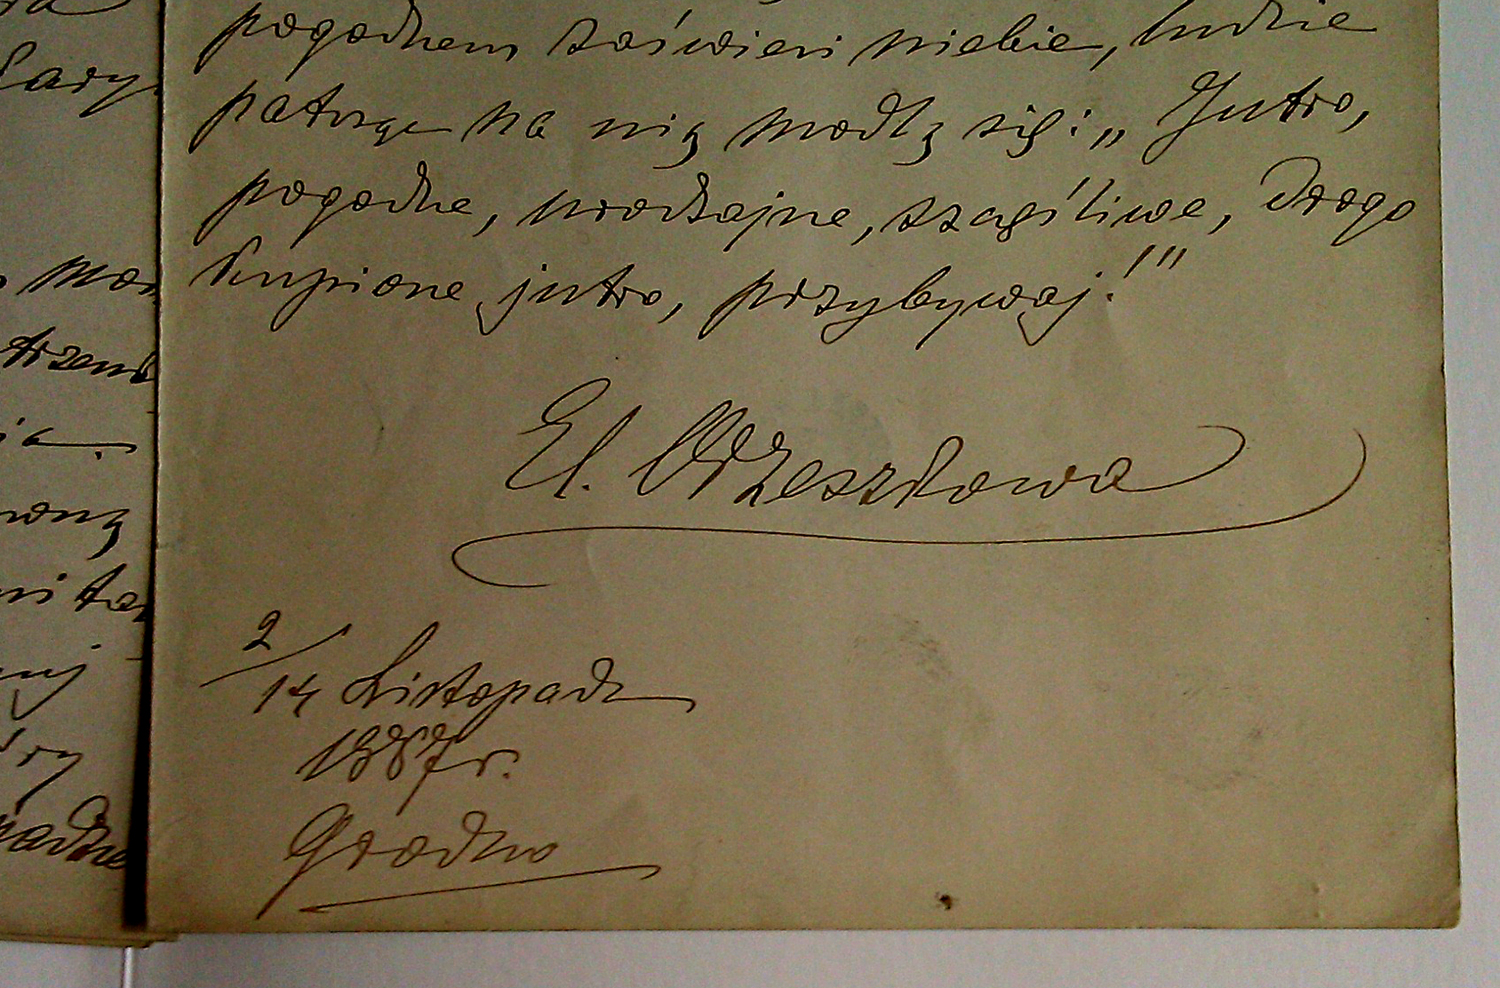 pogodnem zaświeci niebie, ludzie
patrząc na nią modlą się: „Jutro,
pogodne, urodzajne, szczęśliwe, drogo
kupione jutro, przybywaj!"
El. Orzeszkowa
2/14 Listopada
1887 r.
Grodno